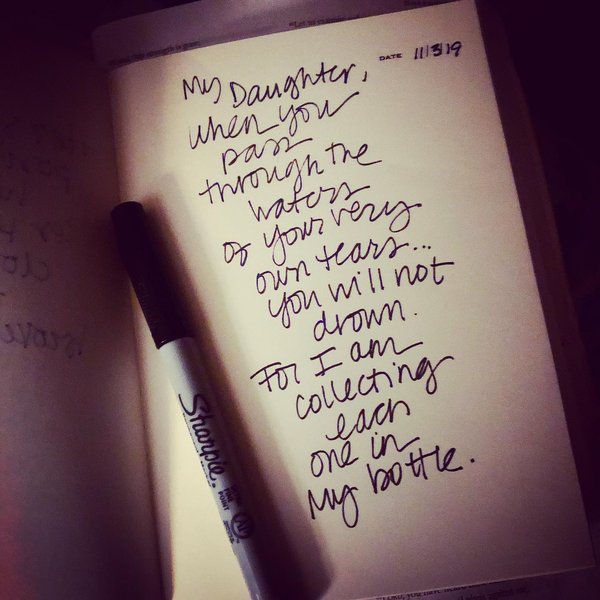 DATE 11/3/19
My Daughter,
when you
pass
through the
waters
of your very
own tears...
you will not
drown.
For I am
collecting
each
one in
My bottle.
Sharpie.